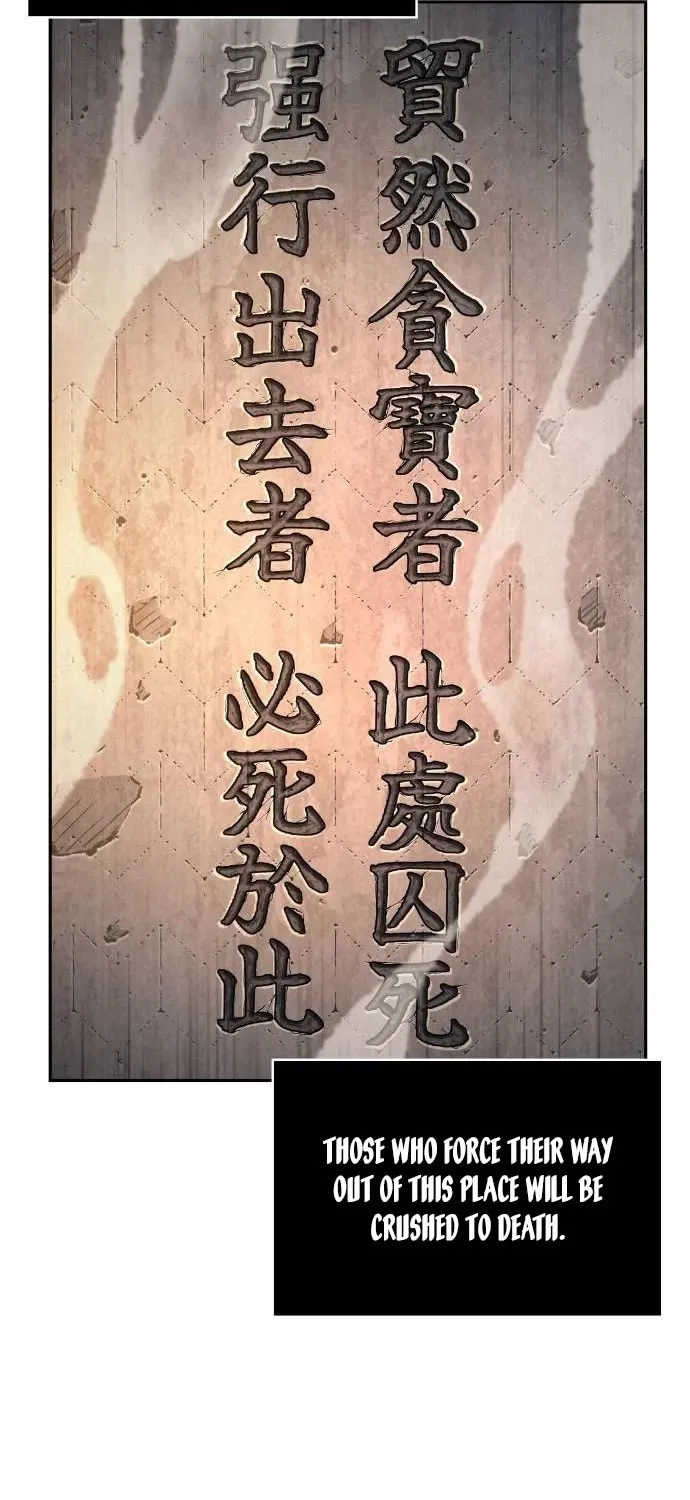 貿然貪寶者 此處囚死
强行出去者 必死於此
THOSE WHO FORCE THEIR WAY
OUT OF THIS PLACE WILL BE
CRUSHED TO DEATH.